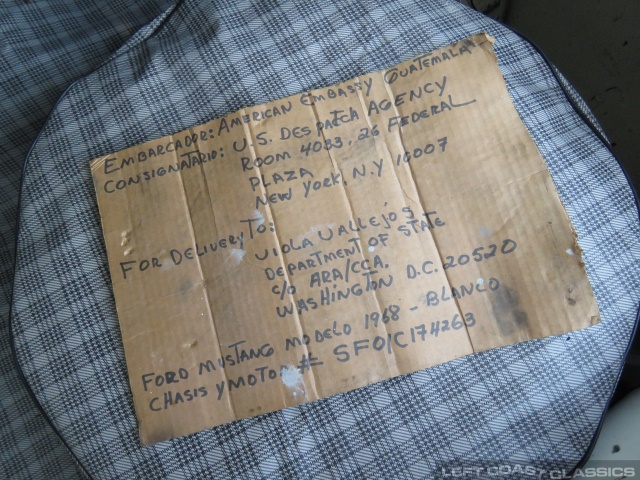 EMBARCADOR: AMERICAN EMBASSY GUATEMALA
CONSIGNATARIO: U.S. DESPATCH AGENCY
ROOM 4033, 26 FEDERAL
PLAZA
NEW YORK, N.Y 10007
FOR DELIVERY TO:
VIOLA VALLEJOS
DEPARTMENT OF STATE
C/O ARA/CCA.
WASHINGTON D.C. 20520
FORD MUSTANG MODELO 1968 - BLANCO
CHASIS Y MOTOR # SFO1C174263
LEFT COAST CLASSICS